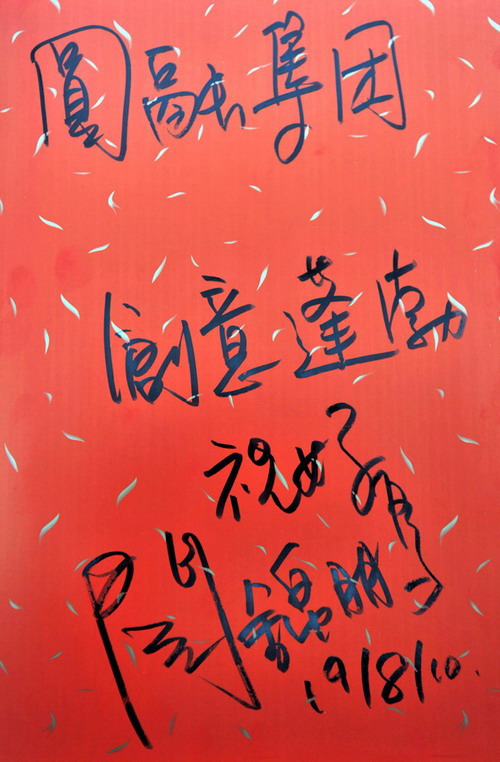 圓融集团
創意蓬勃
祝好
關錦鵬
19/8/10